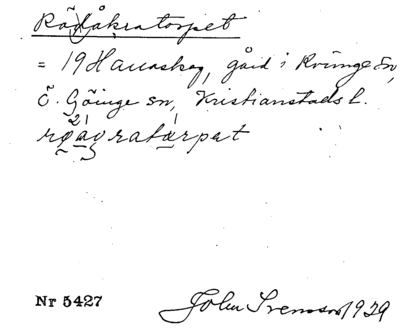 Rödåkratorpet
= 19 Hanaskog, gård i Kviinge sn,
Ö. Göinge sn, Kristianstads l.
Nr 5427
John Svensson 1929